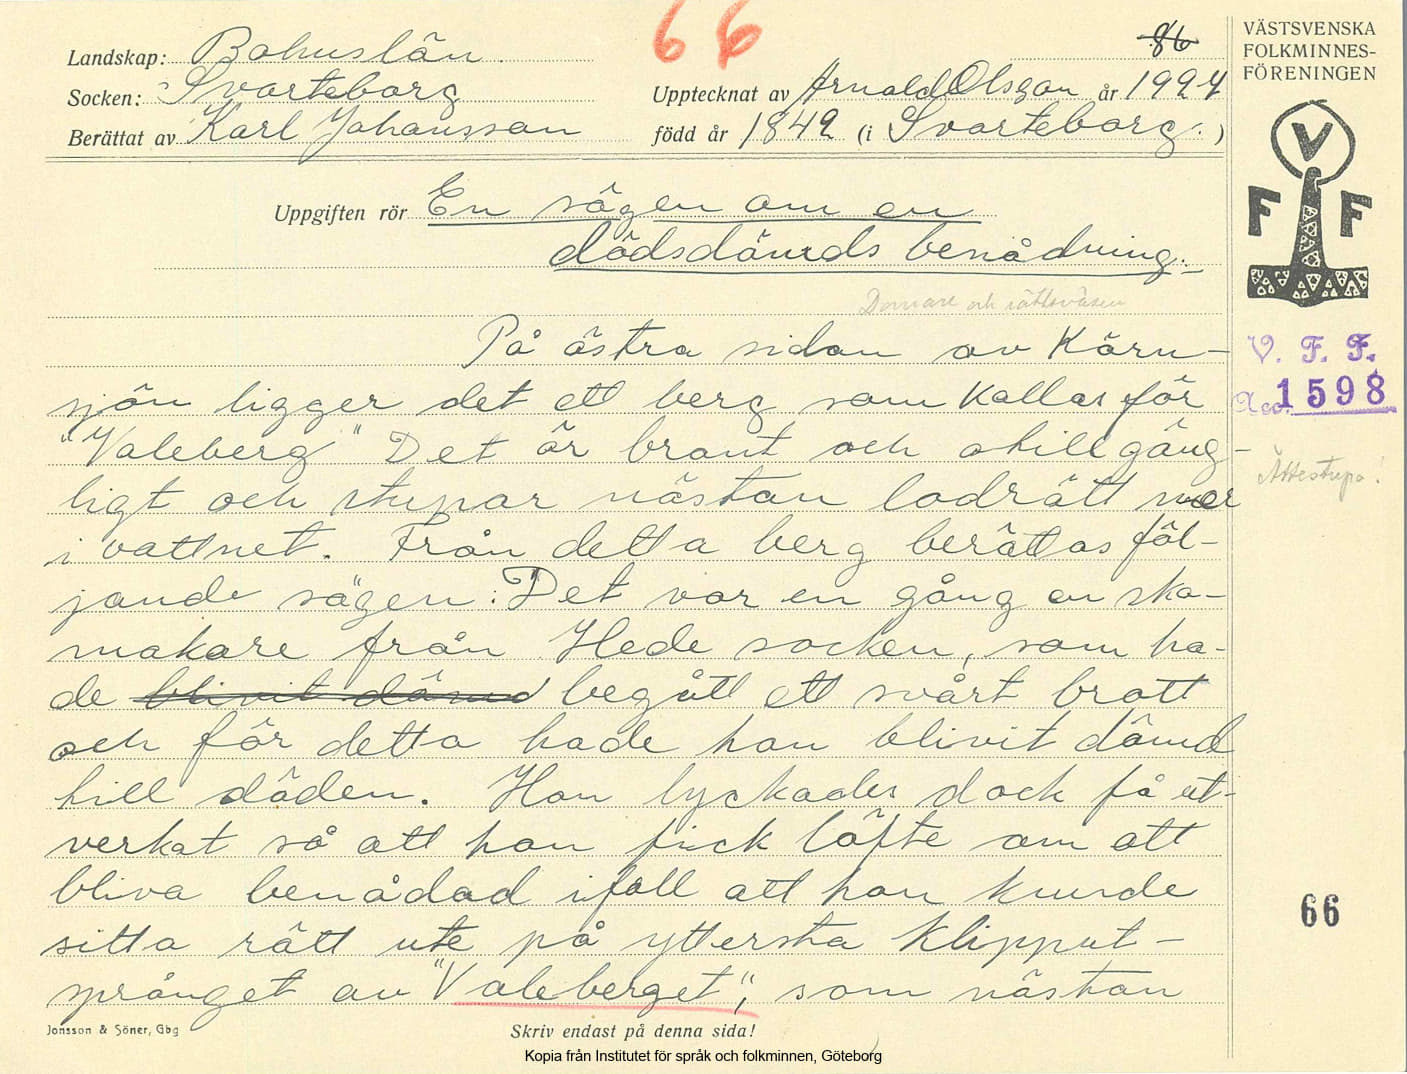 66
86
VÄSTSVENSKA
FOLKMINNES-
FÖRENINGEN
Landskap: Bohuslän.
Socken: Svarteborg
Upptecknat av Arnold Olsson år 1924
Berättat av Karl Johansson
född år 1842 (i Svarteborg.)
V
F F
Uppgiften rör En sägen om en
dödsdömds benådning.
Domare och rättsväsen
På östra sidan av Kärn-
sjön ligger det ett berg som kallas för
"Valeberg" Det är brant och otillgäng-
ligt och stupar nästan lodrätt ner
i vattnet. Från detta berg berättas föl-
jande sägen: "Det var en gång en sko-
makare från Hede socken, som ha-
de blivit dömd begått ett svårt brott
och för detta hade han blivit dömd
till döden. Han lyckades dock få ut-
verkat så att han fick löfte om att
bliva benådad ifall att han kunde
sitta rätt ute på yttersta klipput-
språnget av "Valeberget", som nästan
V. F. F.
Acc. 1598
Ättestupa!
66
Jonsson & Söner, Gbg
Skriv endast på denna sida!
Kopia från Institutet för språk och folkminnen, Göteborg